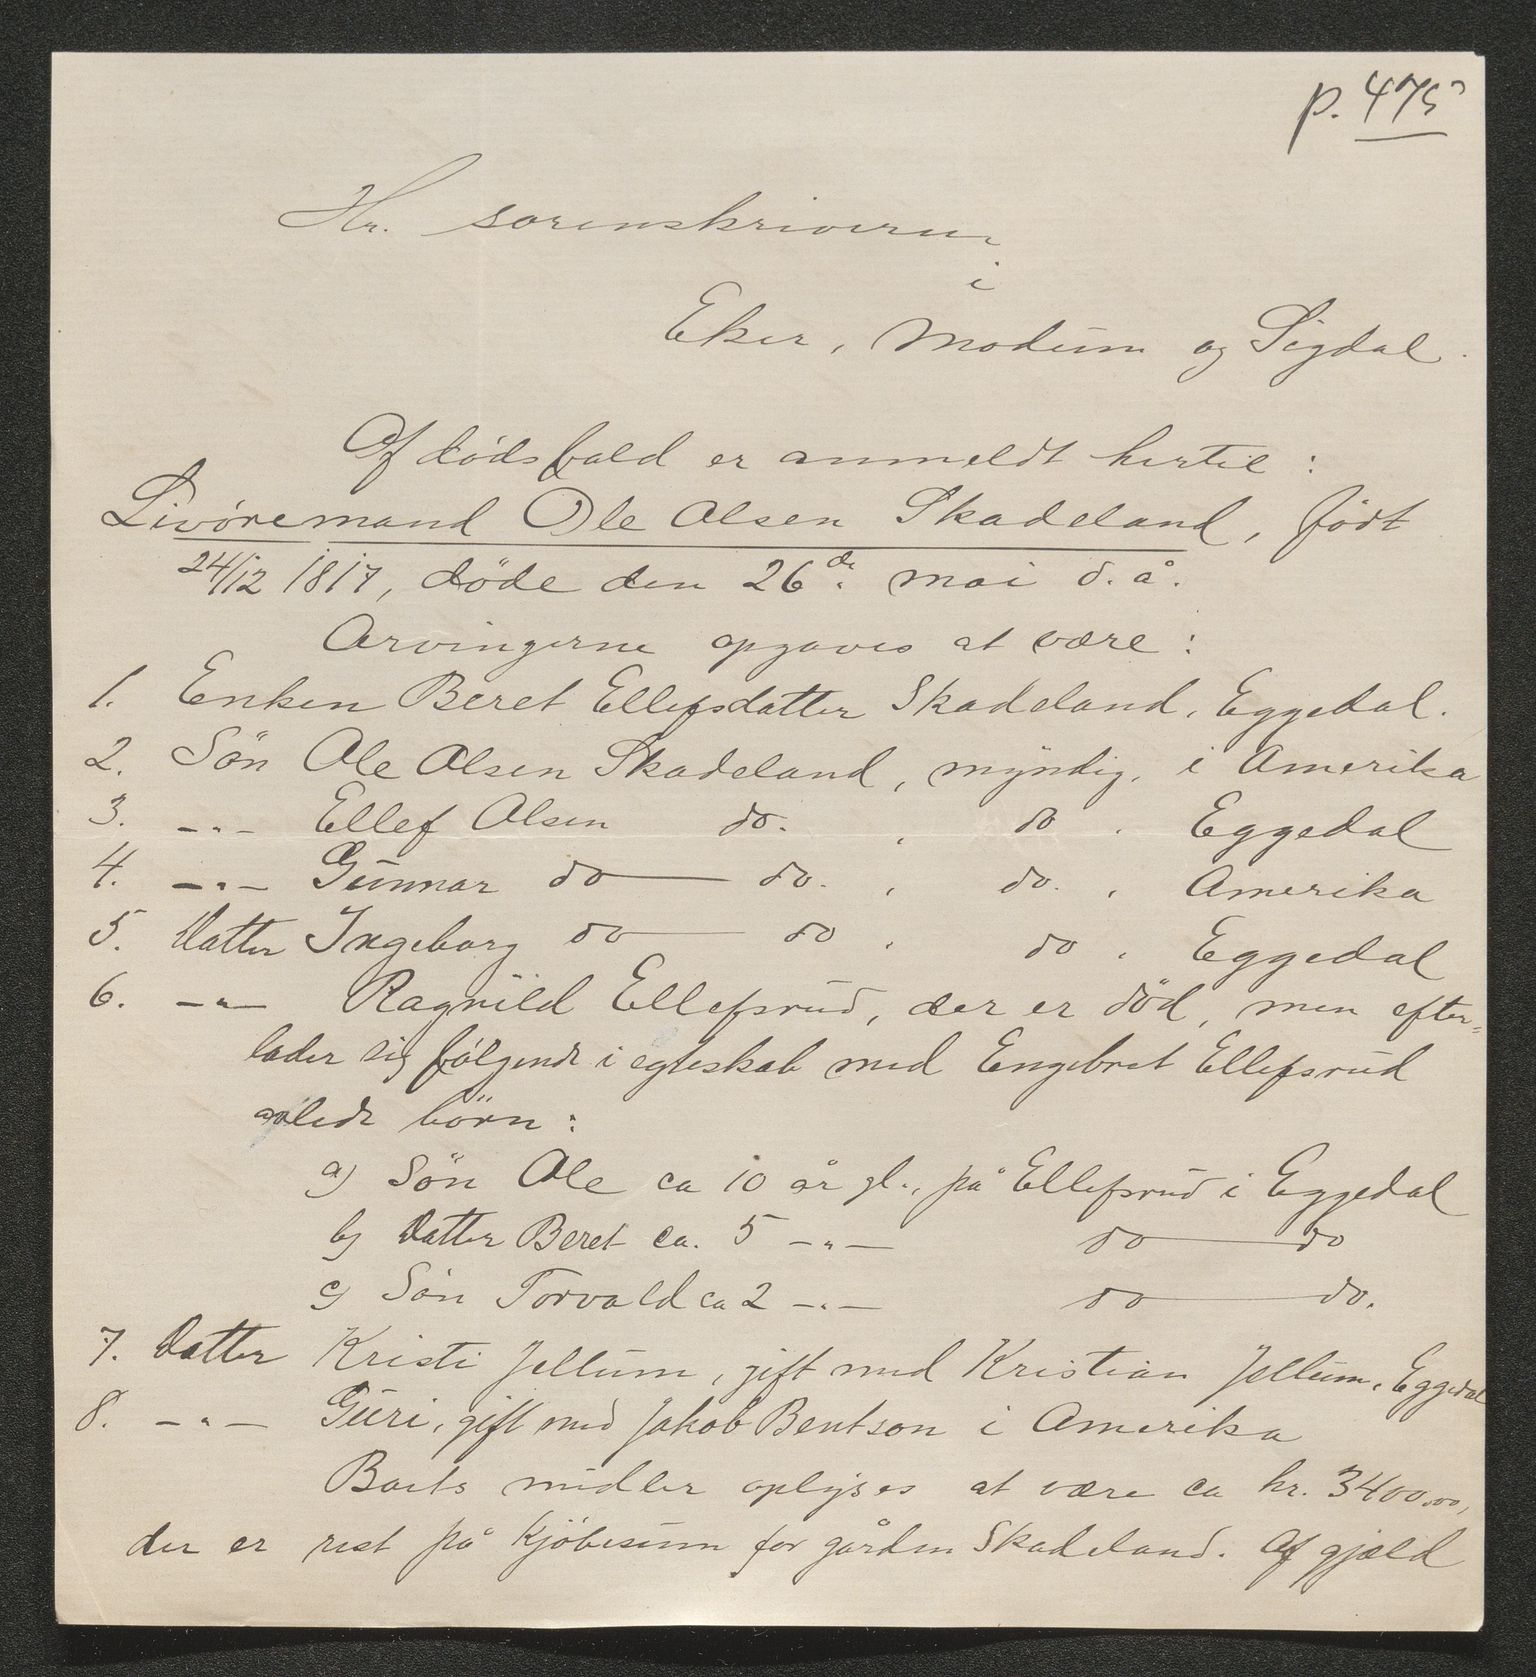 p. 475
Hr. sorenskriveren
i
Eker, Modum og Sigdal.
Af dødsfald er anmeldt hertil:
Livøremand Ole Olsen Skadeland, født
24/12 1817, døde den 26de. mai d. å.
Arvingerne opgaves at være:
1. Enken Beret Ellefsdatter Skadeland, Eggedal.
2. Søn Ole Olsen Skadeland, myndig, i Amerika
3. -"- Ellef Olsen do. , do , Eggedal
4. -"- Gunnar do — do. , do. , Amerika
5. Datter Ingeborg do — do , do , Eggedal
6. -"- Ragnild Ellefsrud, der er död, men efter=
lader sig følgende i egteskab med Engebret Ellefsrud
avlede börn:
a) Sön Ole ca 10 år gl., på Ellefsrud i Eggedal
b) Datter Beret ca. 5 -"- do — do
c) Søn Torvald ca 2 -"- do — do.
7. Datter Kristi Jellum, gift med Kristian Jellum, Eggedal
8. -"- Guri, gift med Jakob Bentson i Amerika
Boets midler oplyses at være ca kr. 3400.00,
der er rest på kjöbesum for gården Skadeland. Af gjæld